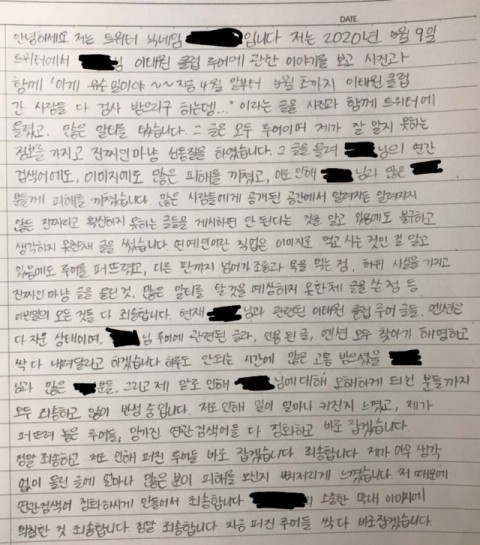 DATE
안녕하세요 저는 트위터 닉네임 입니다 저는 2020년 5월 9일
트위터에서 님 이태원 클럽 루머에 관한 이야기를 보고 사진과
함께 "이게 무슨 일이야~~지금 4월 말부터 5월 초까지 이태원 클럽
간 사람들 다 검사 받으라구 하는뎅..." 이라는 글을 사진과 함께 트위터에
올렸고, 많은 알티를 탔습니다. 그 글은 모두 루머이며 제가 잘 알지 못하는
정보를 가지고 진짜인 마냥 선동질을 하였습니다. 그 글을 올려 님의 연관
검색어에도, 이미지에도 많은 피해를 끼쳤고, 이로 인해 님과 많은
분들께 피해를 끼쳤습니다. 많은 사람들에게 공개된 공간에서 알려지든 알려지지
않든 진짜라고 확신하지 못하는 글들을 게시하면 안 된다는 것을 알고 있음에도 불구하고
생각하지 못한채 글을 썼습니다 연예인이란 직업은 이미지로 먹고 사는 것인 걸 알고
있음에도 루머를 퍼뜨렸고, 다른 판까지 넘어가 조롱과 욕을 먹는 점, 허위 사실을 가지고
진짜인 마냥 글을 올린 것, 많은 알티를 탈 것을 예상하지 못한채 글을 쓴 점 등
이번일의 모든 것들 다 죄송합니다. 현재 님과 관련된 이태원 클럽 루머 글들, 멘션은
다 지운 상태이며, 님 루머에 관련된 글과, 인용 된 글, 멘션 모두 찾아가 해명하고
싹 다 내려달라고 하겠습니다 하루도 안되는 시간에 많은 고통 받으셨을
님과 많은 분들, 그리고 제 말로 인해 님에 대해 오해하게 되신 분들까지
모두 죄송하고 많이 반성 중입니다. 저로 인해 일이 얼마나 커진지 느꼈고, 제가
퍼뜨려 놓은 루머들, 망가진 연관검색어들 다 정화하고 바로 잡겠습니다.
정말 죄송하고 저로 인해 퍼진 루머들 바로 잡겠습니다. 죄송합니다. 제가 아무 생각
없이 올린 글에 얼마나 많은 분이 피해를 보신지 뼈저리게 느꼈습니다. 저 때문에
연관검색어 정화하시게 만들어서 죄송합니다 의 소중한 막내 이미지에
먹칠한 것 죄송합니다 정말 죄송합니다 지금 퍼진 루머들 싹 다 바로잡겠습니다.